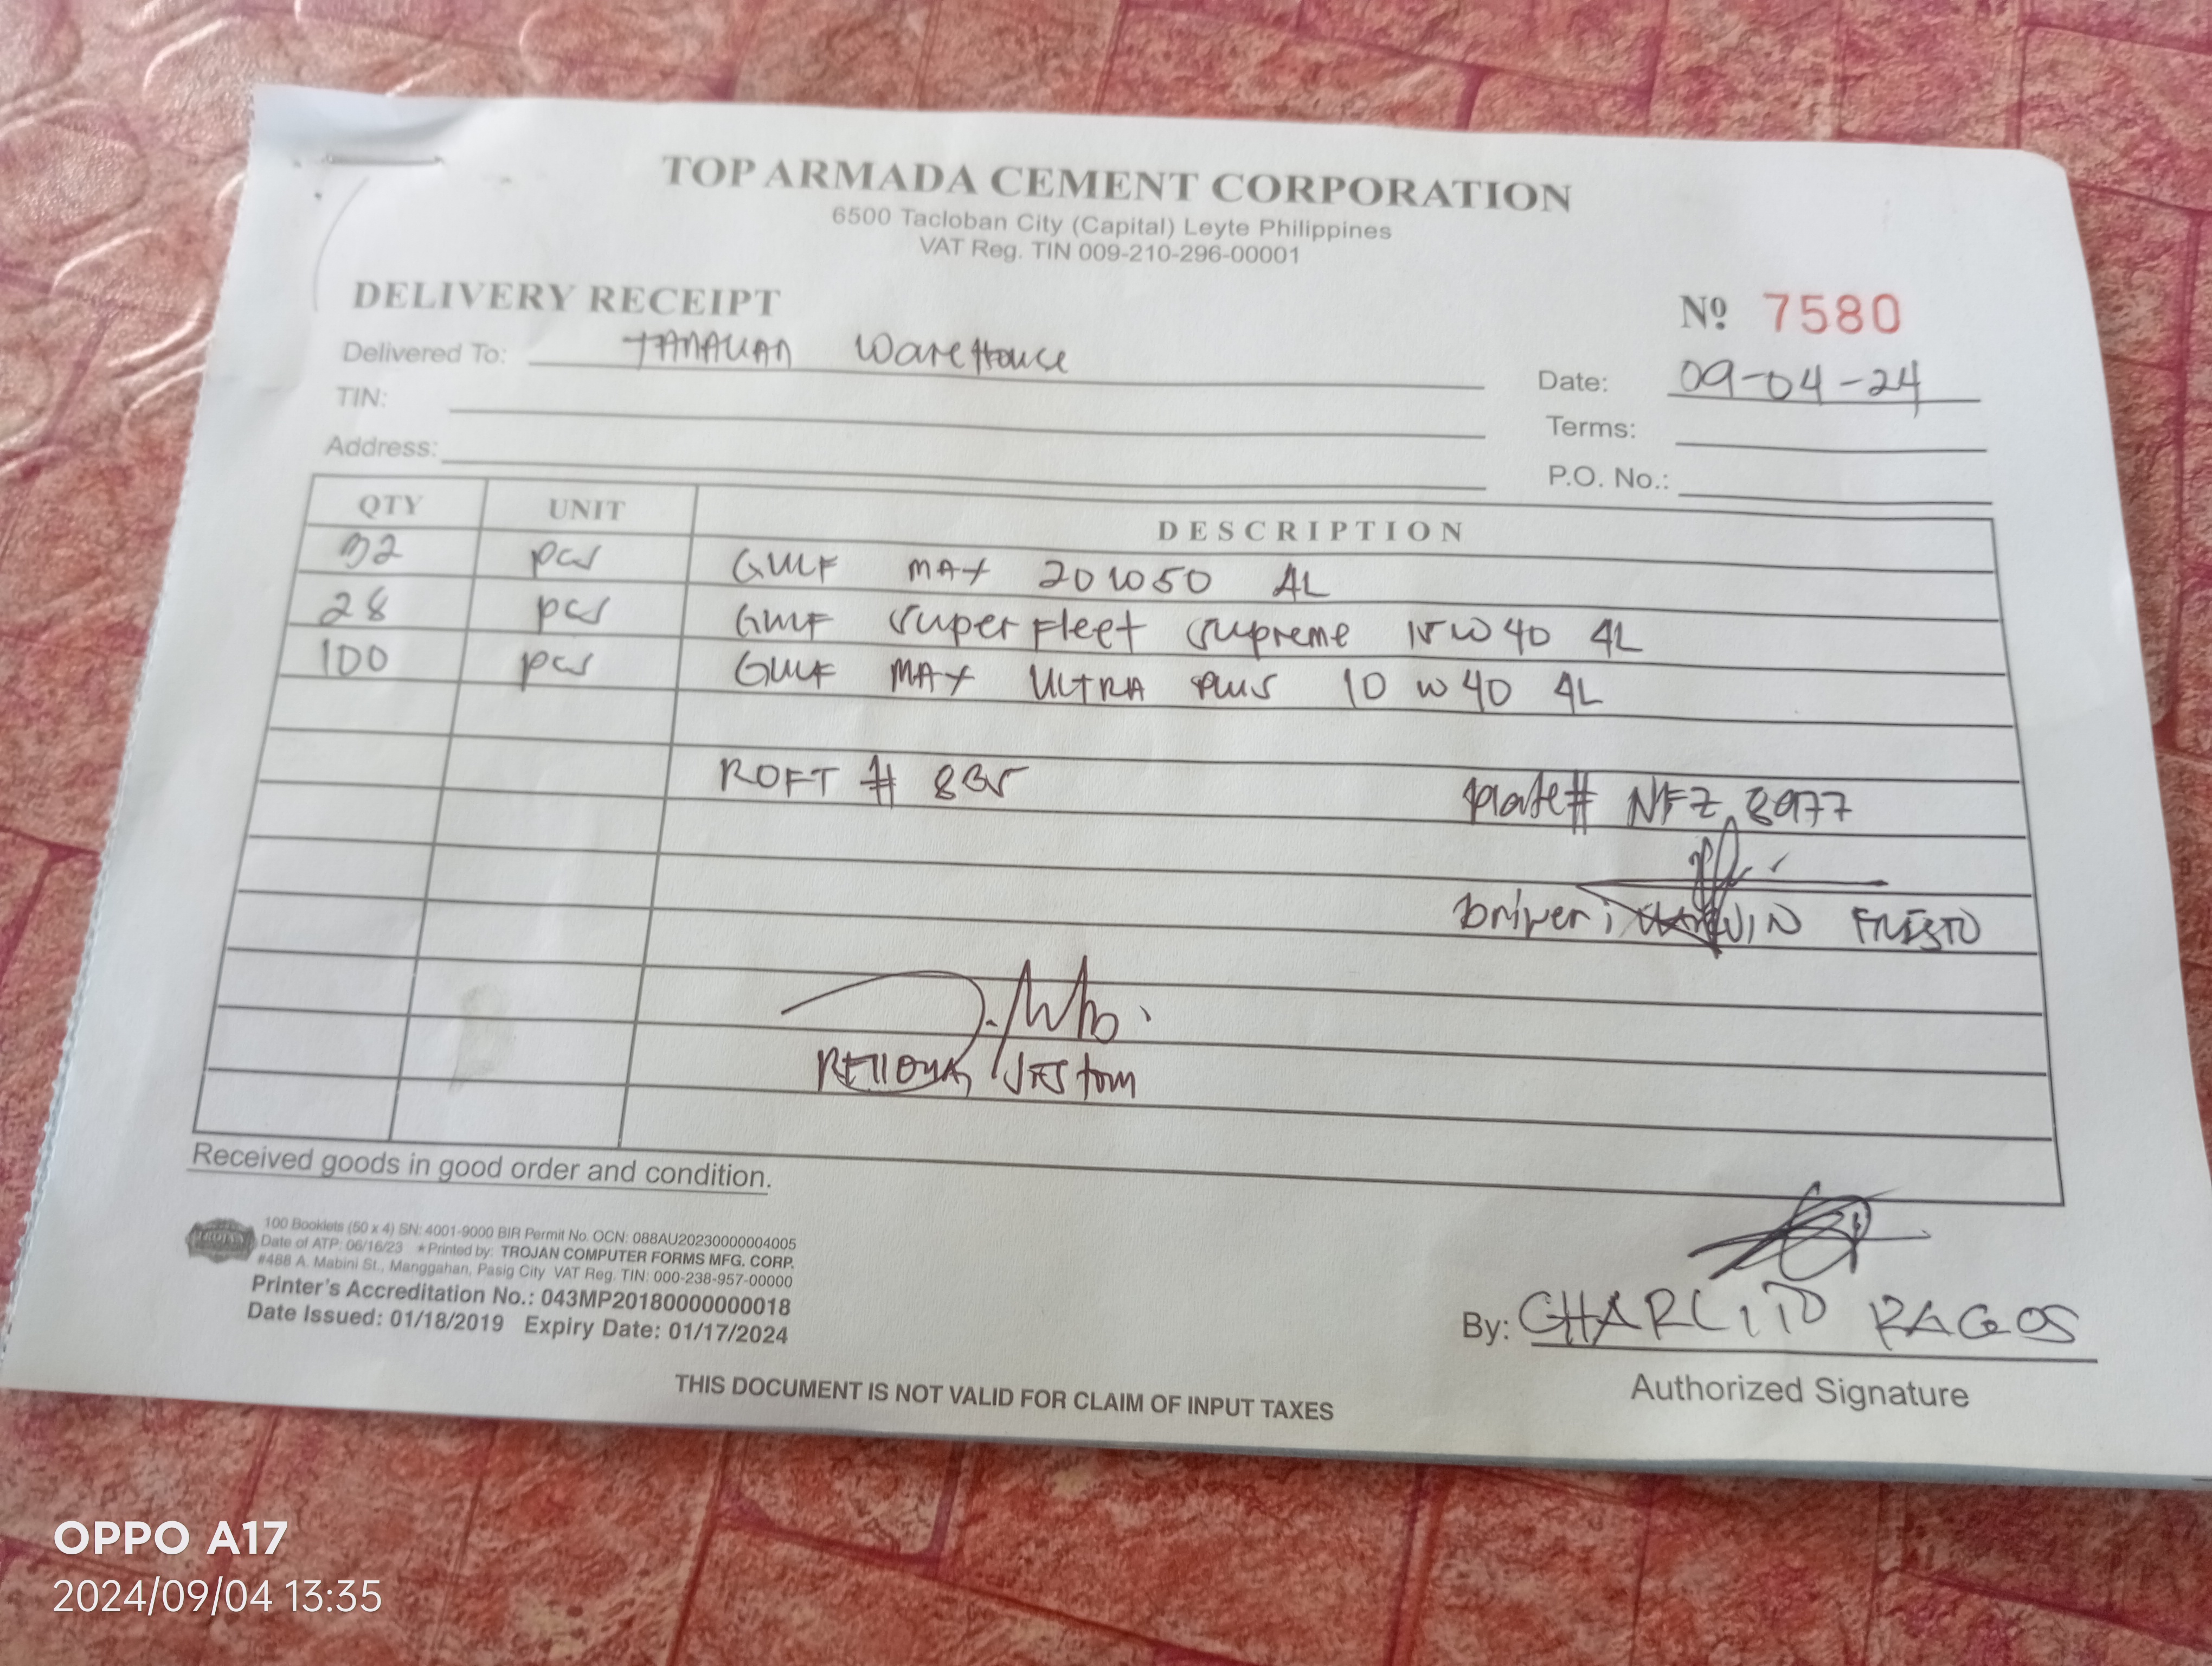 TOP ARMADA CEMENT CORPORATION
6500 Tacloban City (Capital) Leyte Philippines
VAT Reg. TIN 009-210-296-00001
DELIVERY RECEIPT
Nº 7580
Delivered To: TANAUAN WareHouse
Date: 09-04-24
TIN:
Terms:
Address:
P.O. No.:
QTY UNIT DESCRIPTION
32 pcs GULF MAX 20W50 4L
28 pcs GULF Super Fleet Supreme 15W40 4L
100 pcs GULF MAX ULTRA PLUS 10W40 4L
ROFT # 885
plate# NFZ 8977
Driver:
Received goods in good order and condition.
100 Booklets (50 x 4) SN: 4001-9000 BIR Permit No. OCN: 088AU20230000004005
Date of ATP: 06/16/23 *Printed by: TROJAN COMPUTER FORMS MFG. CORP.
#488 A. Mabini St., Manggahan, Pasig City VAT Reg. TIN: 000-238-957-00000
Printer's Accreditation No.: 043MP20180000000018
Date Issued: 01/18/2019 Expiry Date: 01/17/2024
By: CHARLITO RAGOS
Authorized Signature
THIS DOCUMENT IS NOT VALID FOR CLAIM OF INPUT TAXES
OPPO A17
2024/09/04 13:35